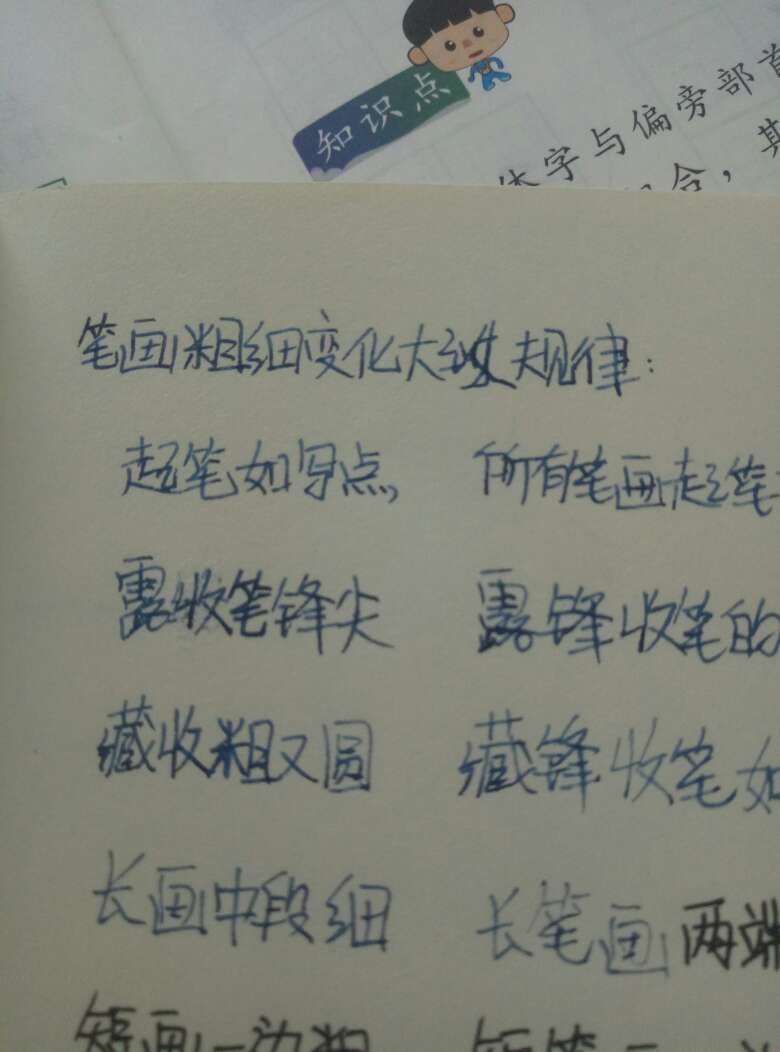 知识点
字与偏旁部首
合，其
笔画粗细变化大致规律：
起笔如写点， 所有笔画起笔
露收笔锋尖 露锋收笔的
藏收粗又圆 藏锋收笔如
长画中段细 长笔画两端
短画一边粗 短笔